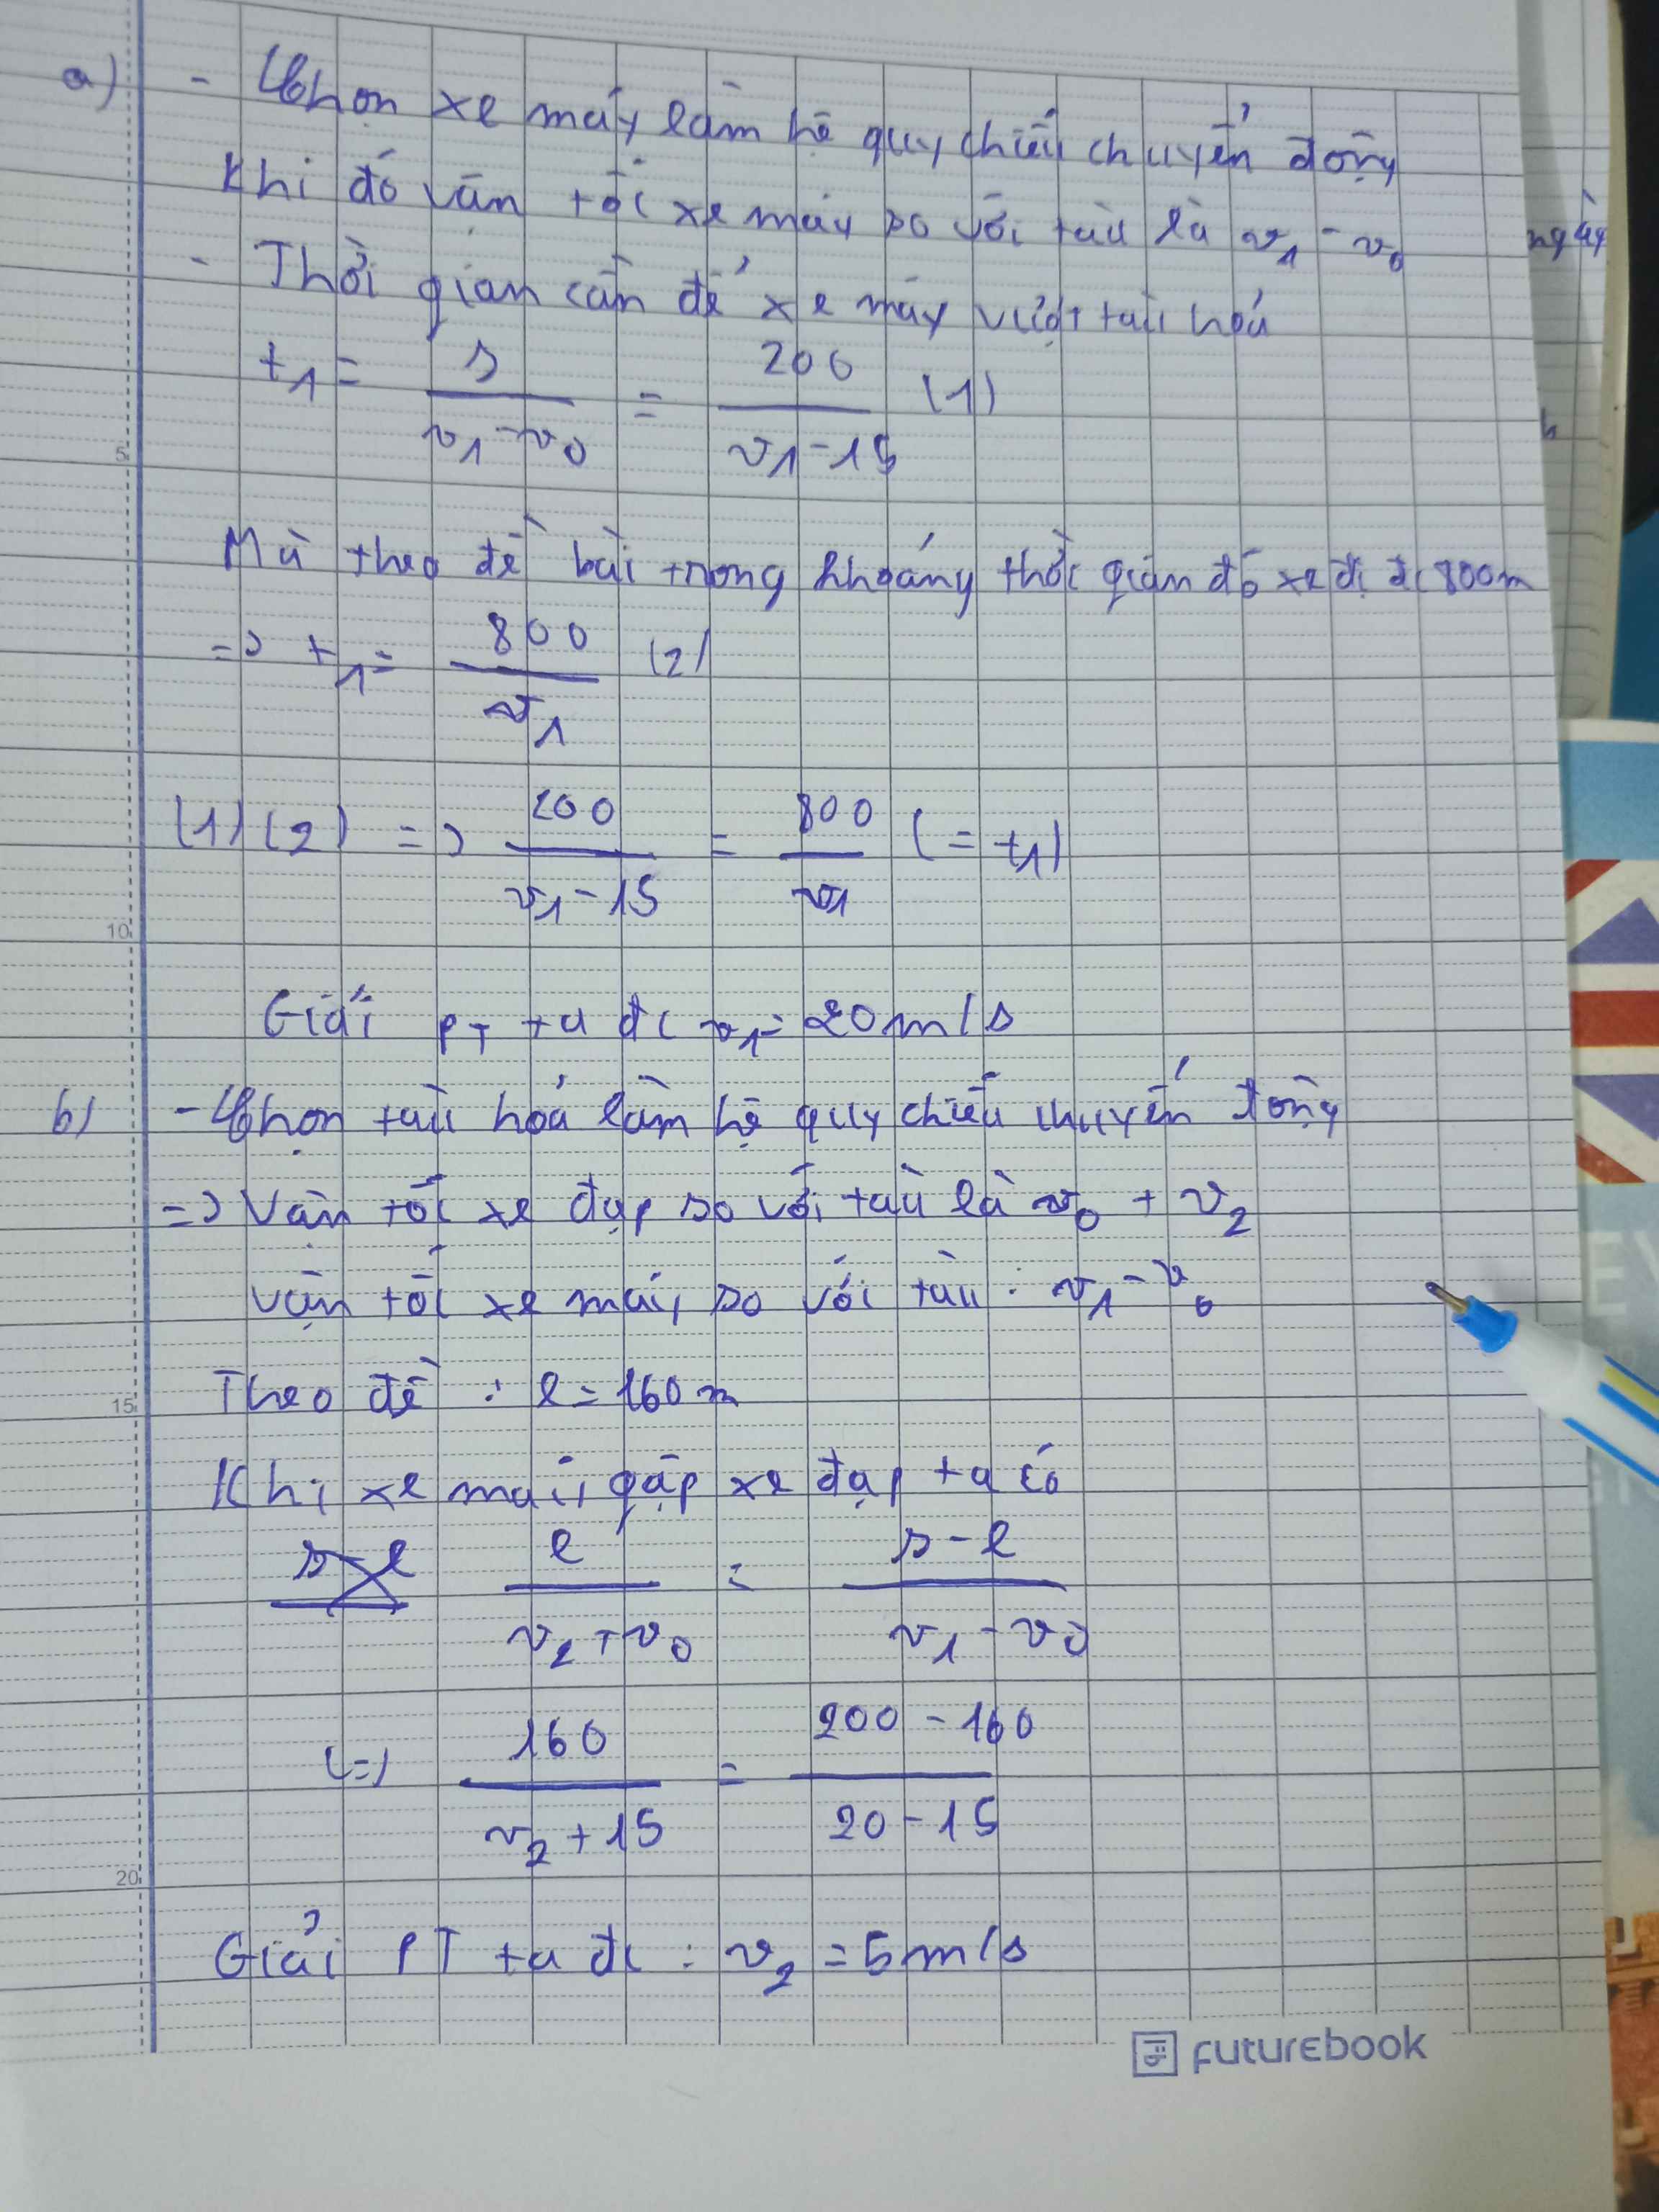 a) - Chọn xe máy làm hệ quy chiếu chuyển động
Khi đó vận tốc xe máy so với tàu là v₁ - v₀
- Thời gian cần để xe máy vượt tàu hoả
t₁ = s / (v₁ - v₀) = 200 / (v₁ - 15) (1)
5
Mà theo đề bài trong khoảng thời gian đó xe đi đc 800m
=> t₁ = 800 / v₁ (2)
(1)(2) => 200 / (v₁ - 15) = 800 / v₁ (= t₁)
10
Giải PT ta đc v₁ = 20m/s
b) - Chọn tàu hoả làm hệ quy chiếu chuyển động
=> Vận tốc xe đạp so với tàu là v₀ + v₂
vận tốc xe máy so với tàu : v₁ - v₀
Theo đề : l = 160m
15
Khi xe máy gặp xe đạp ta có
l / (v₂ + v₀) = (s - l) / (v₁ - v₀)
(=) 160 / (v₂ + 15) = (200 - 160) / (20 - 15)
20
Giải PT ta đc : v₂ = 5m/s
FUTUREBOOK
ngày